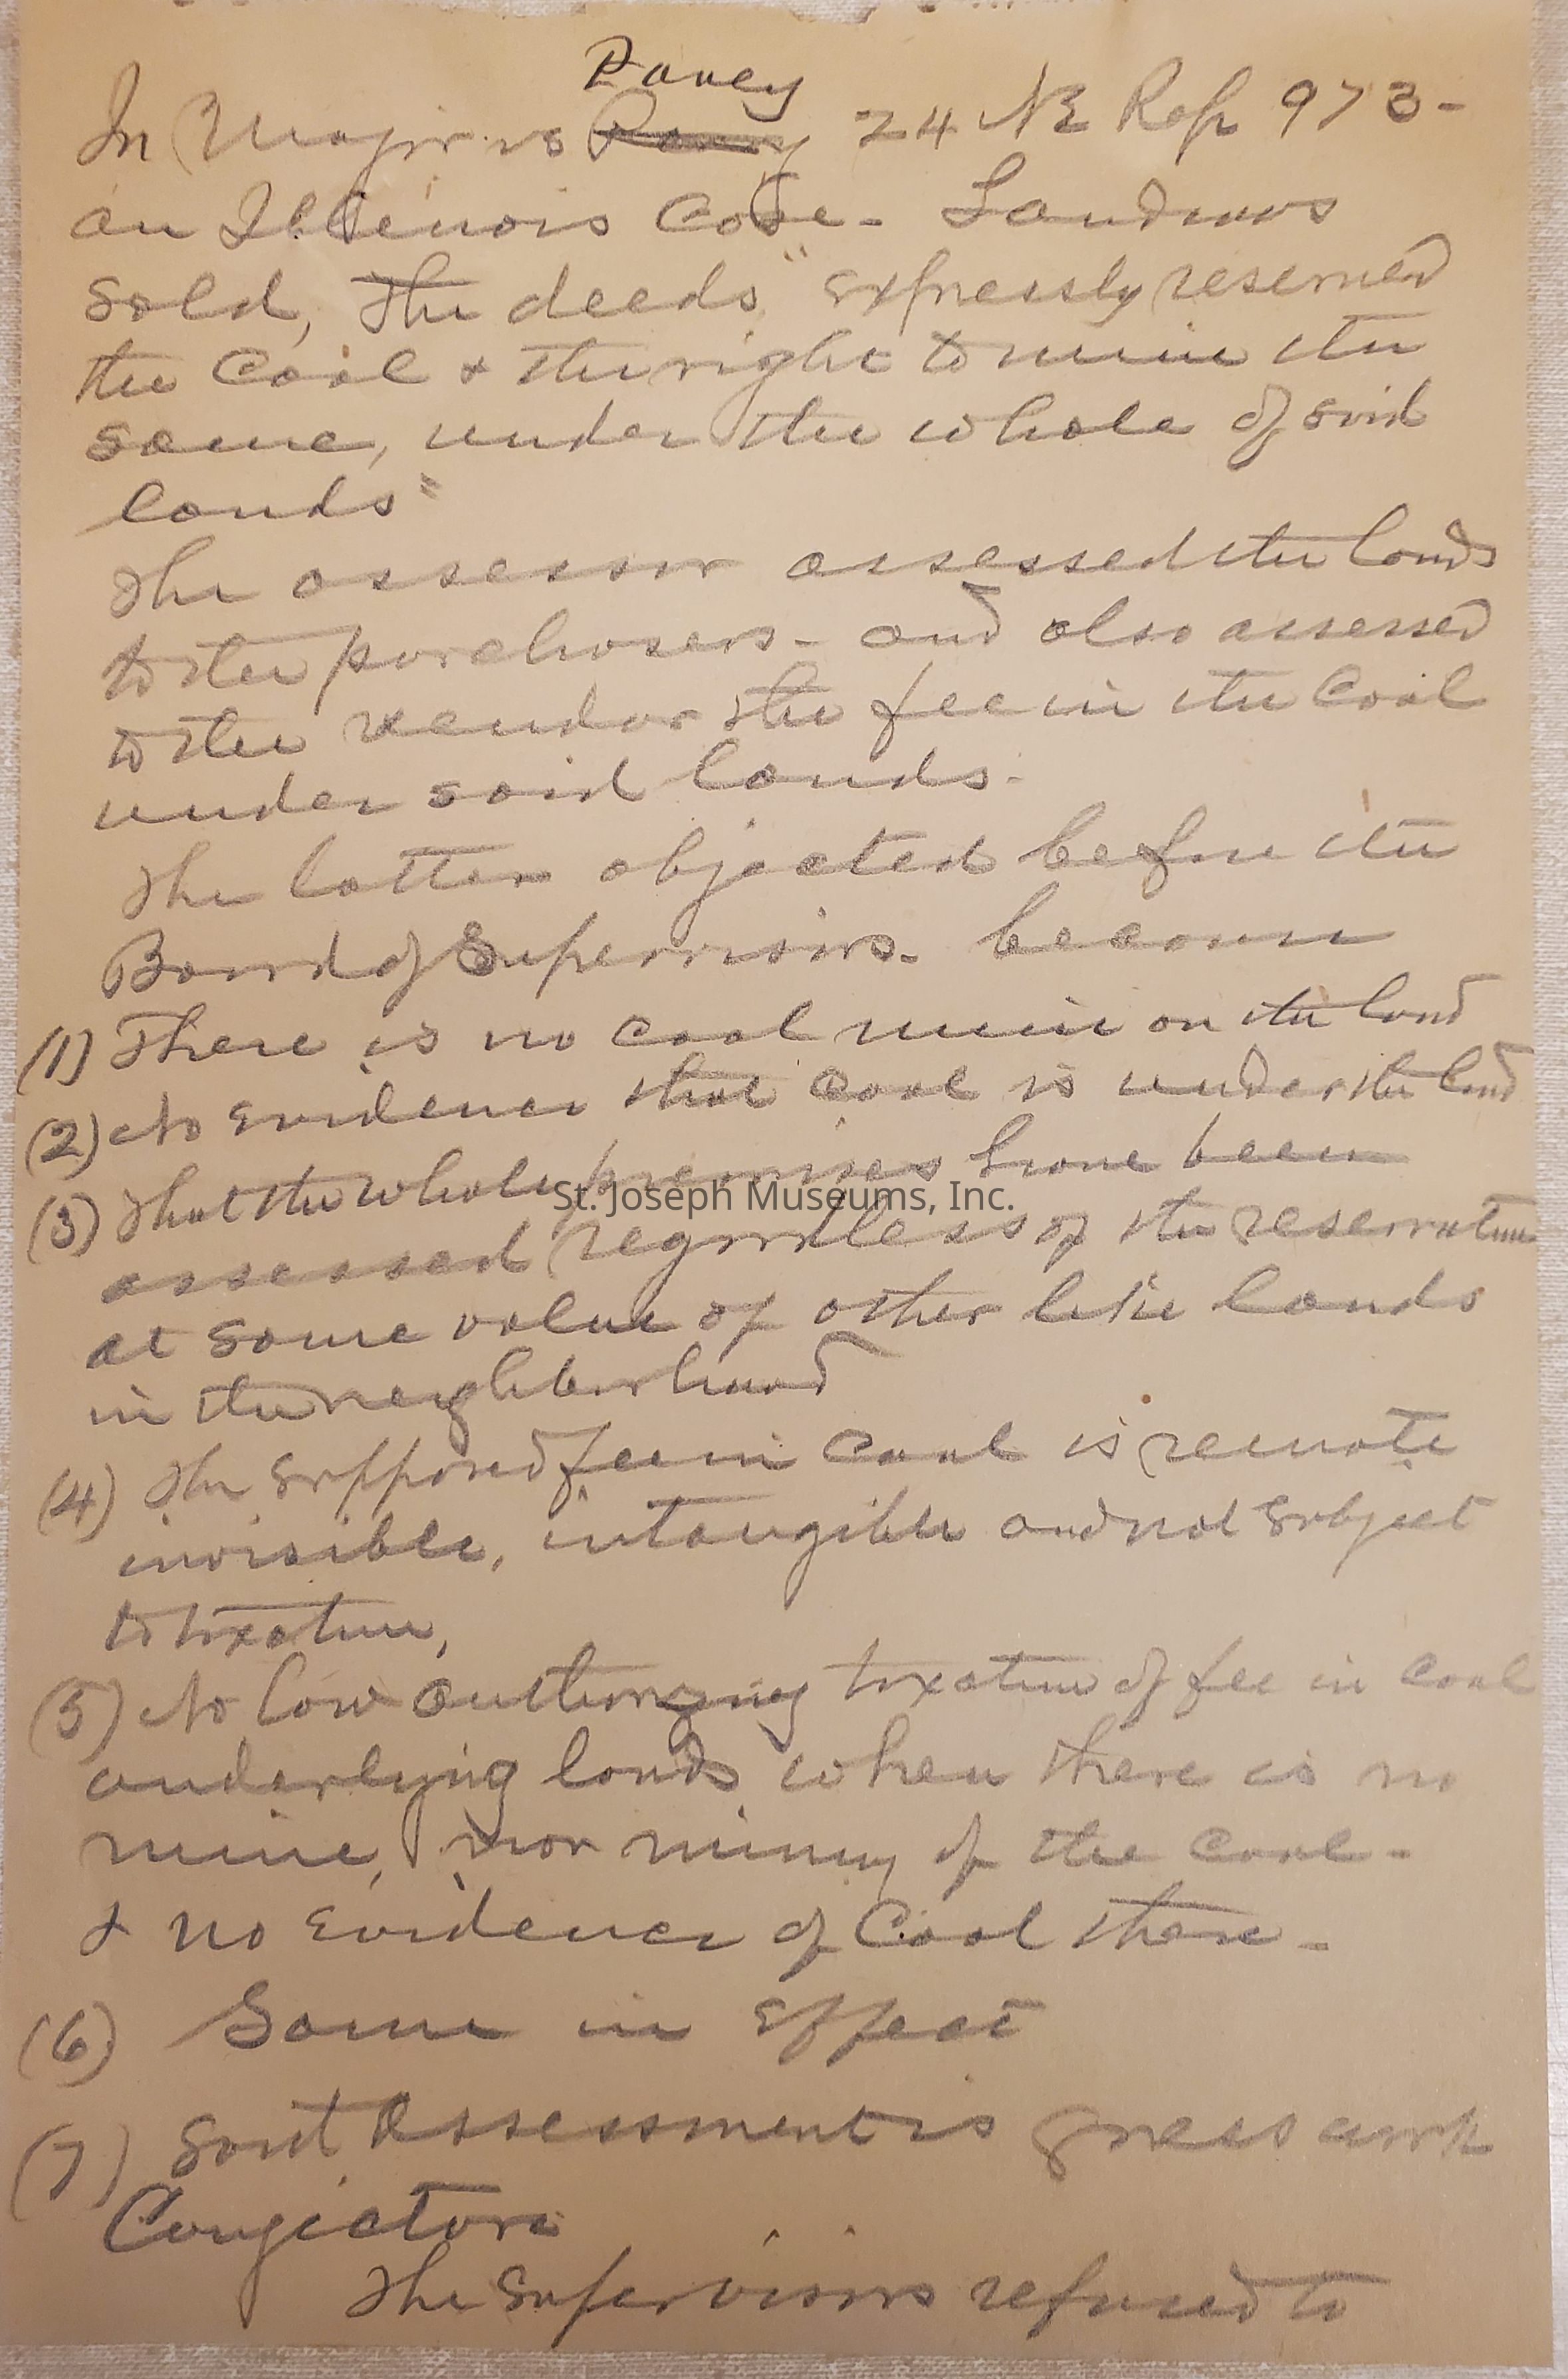 Pavey
In Major vs 24 NE Rep 973 -
an Illinois Case - Land was
sold, The deeds "expressly reserved
the Coal & the right to mine the
same, under the whole of said
lands"
The assessor assessed the lands
to the purchasers - and also assessed
to the vendor the fee in the Coal
under said lands.
The latter objected before the
Board of Supervisors - because
(1) There is no coal mine on the land
(2) No evidence that coal is under the land
(3) That the whole premises have been
St. Joseph Museums, Inc.
assessed regardless of the reservation
at same value of other like lands
in the neighborhood
(4) The supposed fee in coal is remote
invisible, intangible and not subject
to taxation,
(5) No law authorizing taxation of fee in coal
underlying lands when there is no
mine, nor mining of the coal -
& no evidence of Coal there -
(6) Same in effect
(7) Said Assessment is guess work
Conjecture
The Supervisors refused to